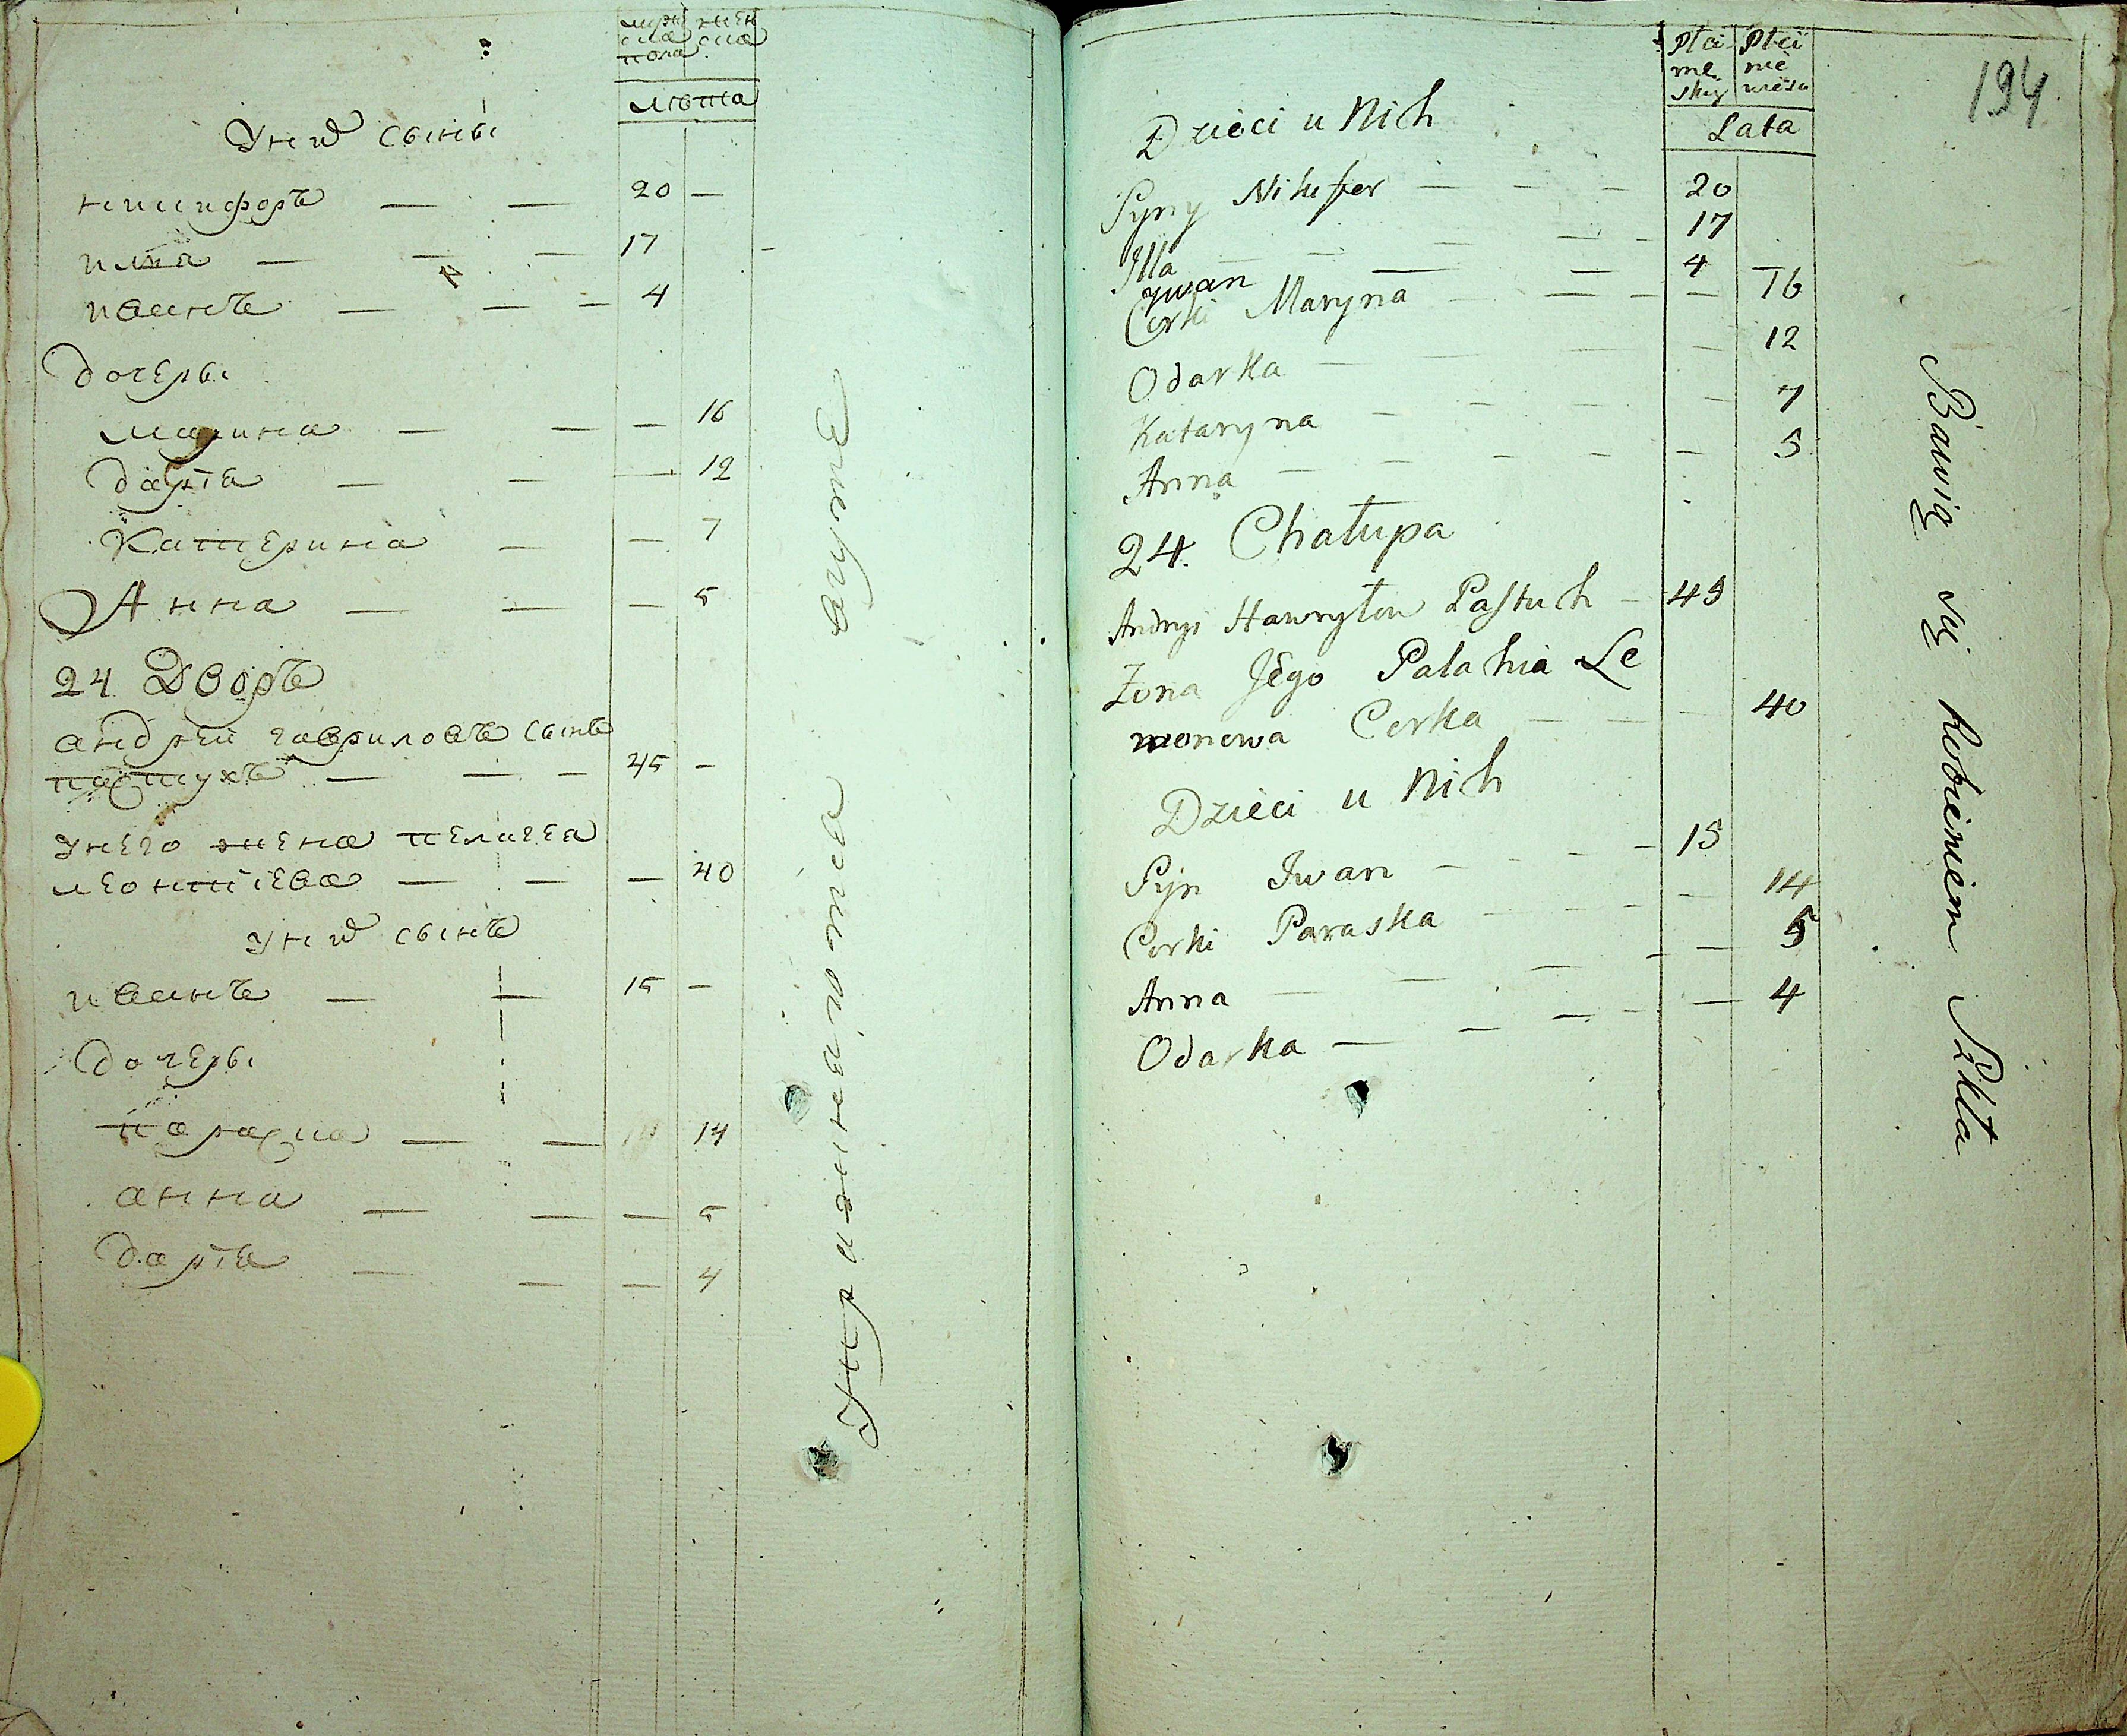 мужска пола
женска
лѣта
У них сыны
никифоръ — — 20 —
илиа — — — 17
иванъ — — — 4
дочеры
марина — — — 16
дариа — — — 12
Катерина — — 7
Анна — — — 5
24 Дворъ
андрей гавриловъ сынъ
пастухъ — — — 45 —
У него жена пелагеа
леонтіева — — — 40
У них сынъ
иванъ — — 15 —
дочеры
параска — — 14
анна — — — 5
дариа — — — 4
194
Płci męskiey
Płci niewieści
Lata
Dzieci u Nich
Syny Nikifer — — — 20
Illa — — — — 17
Jwan — — 4
Corki Maryna — — — — 16
Odarka — — — — 12
Kataryna — — — — 7
Anna — — — — — — 5
24. Chałupa
Andryi Hawryłow Pastuch — 45
Żona Jego Palahia Le
monowa Corka — — — 40
Dzieci u Nich
Syn Iwan — — — — 15
Corki Paraska — — — — 14
Anna — — — — — 5
Odarka — — — — — 4
Bawią się robieniem Szkła